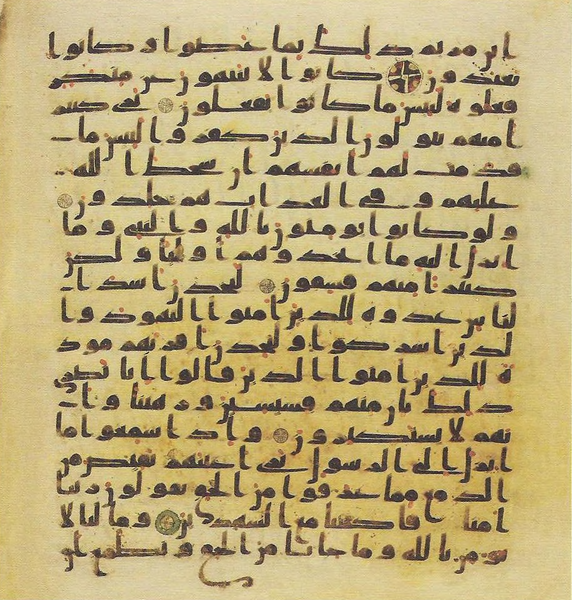 ابن مريم ذلك بما عصوا وكانوا
يعتدون كانوا لا يتنهون عن منكر
فعلوه لبئس ما كانوا يفعلون ترى كثيرا
منهم يتولون الذين كفروا لبئس ما
قدمت لهم انفسهم ان سخط الله
عليهم وفي العذاب هم خلدون
ولو كانوا يومنون بالله والنبي وما
انزل اليه ما اتخذوهم اوليا ولكن
كثيرا منهم فسقون لتجدن اشد ا
لناس عدوة للذين امنوا اليهود وا
لذين اشركوا ولتجدن اقربهم مود
ة للذين امنوا الذين قالوا انا نصرى
ذلك بان منهم قسيسين ورهبنا وا
نهم لا يستكبرون واذا سمعوا ما
انزل الى الرسول ترى اعينهم تفيض من
الدمع مما عرفوا من الحق يقولون ربنا
امنا فاكتبنا مع الشهدين وما لنا لا
نومن بالله وما جانا من الحق ونطمع ان